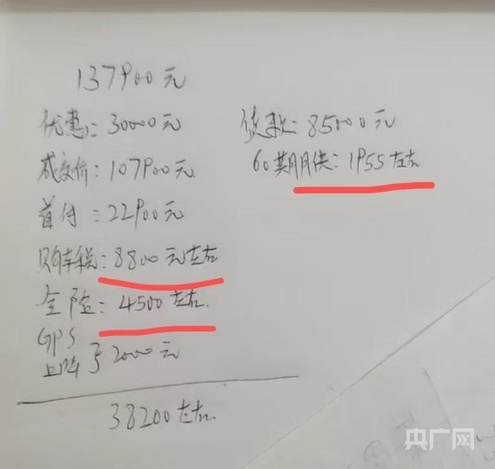 137900元
优惠: 30000元
成交价: 107900元
首付: 22900元
购车税: 8800元左右
全险: 4500左右.
GPS
上牌 } 2000元
38200左右.
贷款: 85000元
60期月供: 1955左右
央广网
www.cnr.cn